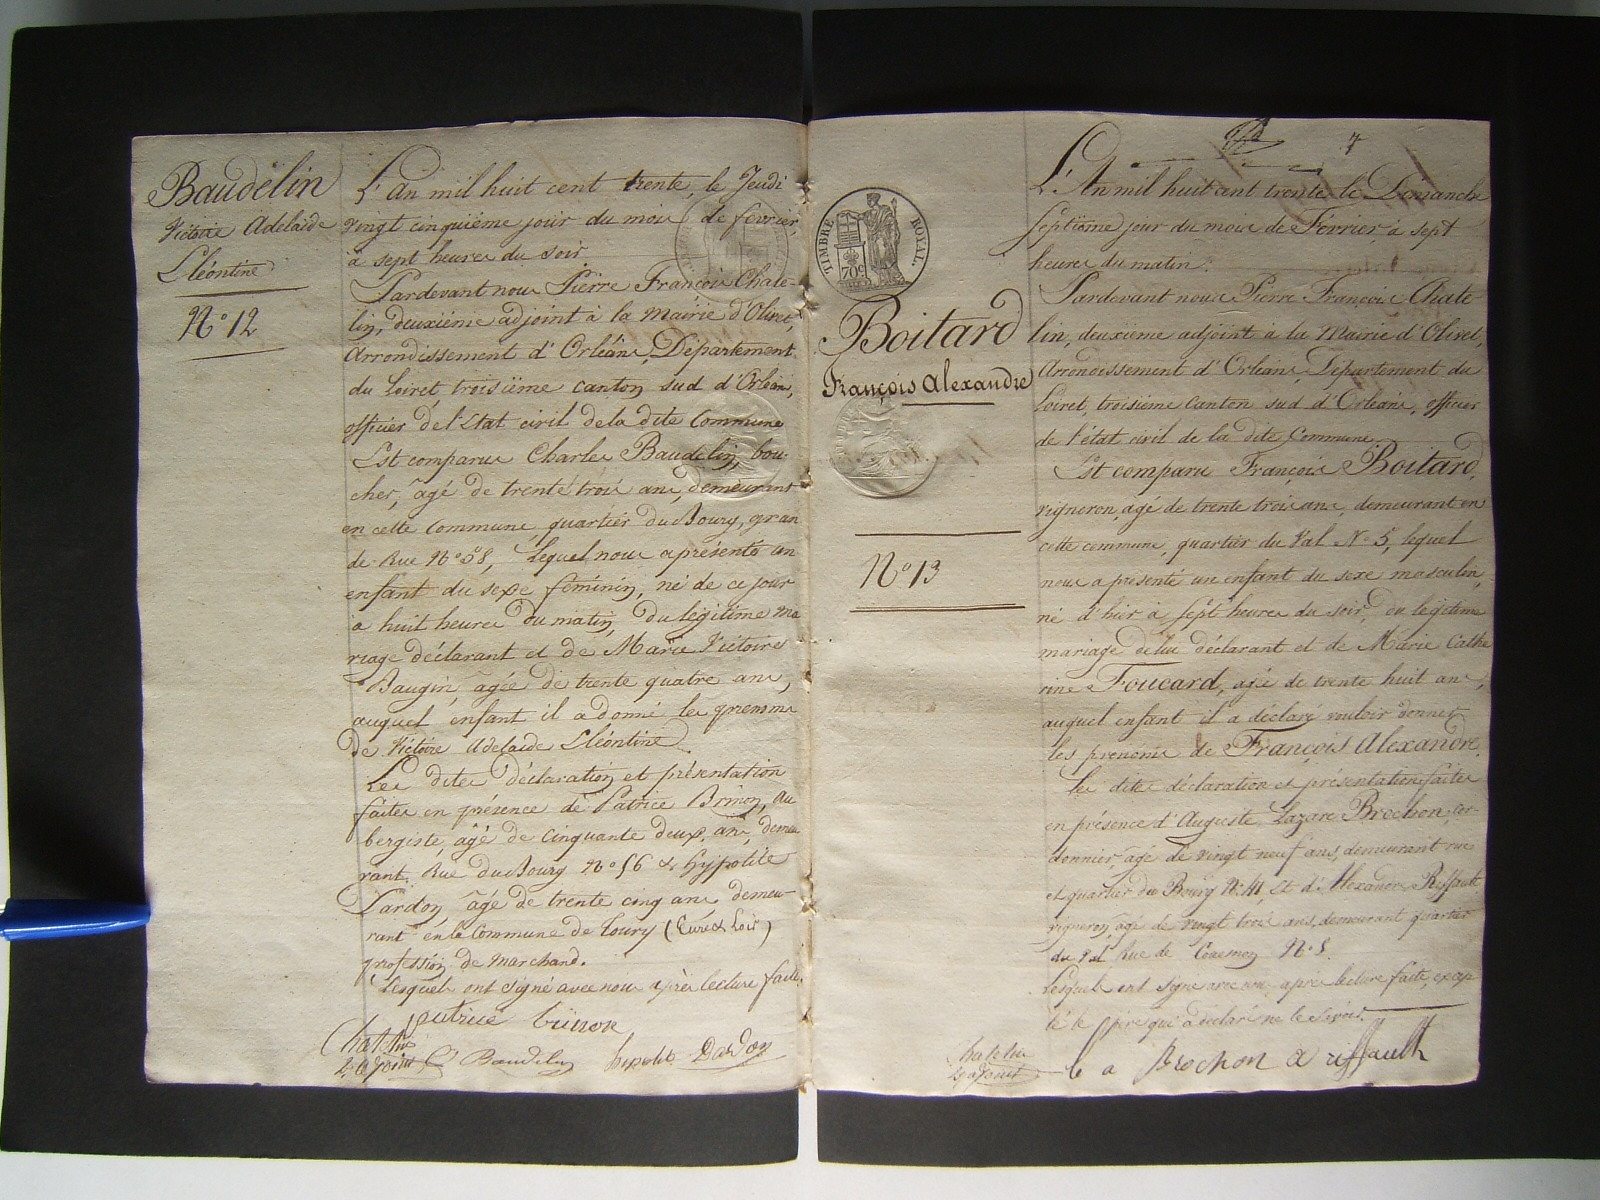 Baudelin
Victoire Adelaide
Cléontine
N° 12
L'An mil huit cent trente, le Jeudi
vingt cinquiéme jour du mois de février,
à sept heures du soir.
Pardevant nous Pierre François Chate-
lin, deuxiéme adjoint à la Mairie d'Olivet,
Arrondissement d'Orléans, Département
du Loiret, troisiéme canton sud d'Orléans,
officier de l'Etat civil de la dite Commune
Est comparu Charles Baudelin, bou-
cher, âgé de trente trois ans, demeurant
en cette Commune quartier du Bourg, gran
de Rue N° 58, Lequel nous a présenté un
enfant du sexe féminin, né de ce jour
à huit heures du matin, du légitime ma
riage déclarant et de Marie Victoire
Baugin, âgée de trente quatre ans,
auquel enfant il a donné les prenoms
de Victoire Adelaide Cléontine
Les dites déclaration et présentation
faites en présence de Patrice Brinon, Au
bergiste, âgé de cinquante deux ans, demeu
rant Rue du Bourg N° 56 & hypolite
Dardon, âgé de trente cinq ans demeu-
rant en la Commune de Toury (Eure & Loir)
profession de Marchand.
Lesquels ont signé avec nous après lecture faite.
patrice brinon
Chatelin
2e adjoint C Baudelin hypolite Dardon
7
TIMBRE ROYAL
70 c
Boitard
François Alexandre
N° 13
L'An mil huit cent trente le Dimanche
septiéme jour du mois de Février, à sept
heures du matin.
Pardevant nous Pierre François Chate
lin, deuxiéme adjoint à la Mairie d'Olivet,
Arrondissement d'Orléans, Département du
Loiret, troisiéme Canton sud d'Orléans, officier
de l'état civil de la dite Commune
Est comparu François Boitard,
vigneron, agé de trente trois ans, demeurant en
cette commune, quartier du Val N° 5, lequel
nous a présenté un enfant du sexe masculin,
né d'hier à sept heures du soir, du légitime
mariage de lui déclarant et de Marie Cathe
rine Foucard, agée de trente huit ans,
auquel enfant il a déclaré vouloir donner
les prenoms de François Alexandre.
Les dites déclaration et présentation faites
en présence d'Auguste Lazare Brochon, cor-
donnier, âgé de vingt neuf ans, demeurant rue
et quartier du Bourg N° 41, Et d'Alexandre Riffault
vigneron, âgé de vingt trois ans, demeurant quartier
du Val Rue de N° 8.
Lesquels ont signé avec nous après lecture faite, excep
té le père qui a declaré ne le savoir.
Chatelin
2e adjoint l a Brochon a riffault